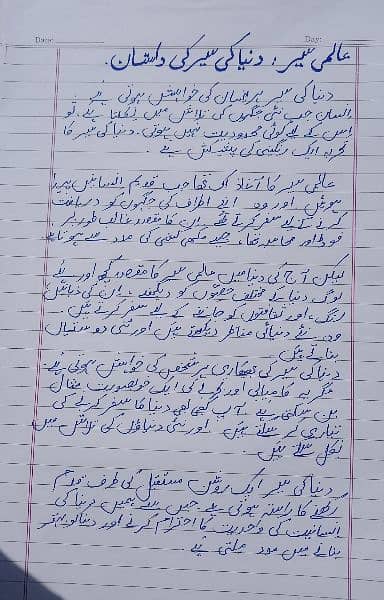 Date: Day:
عالمی سیر: دنیا کی سیر کی داستان.
دنیا کی سیر ہر انسان کی خواہش ہوتی ہے۔
انسان جب نئی جگہوں کی تلاش میں نکلتا ہے، تو
اس کے لیے کوئی محدودیت نہیں ہوتی۔ دنیا کی سیر کا
تجربہ ایک رنگینی کی پیشکش ہے۔
عالمی سیر کا آغاز تب ہوا جب قدیم انسانیں پیدا
ہوئیں اور وہ اپنے اطراف کی جگہوں کو دریافت
کرنے کے لیے سفر کرتے تھے۔ ان کا مقصد غالب طور پر
لیکن آج کی دنیا میں عالمی سیر کا مقصد کچھ اور ہے
لوگ دنیا کے مختلف حصوں کو دیکھنے، ان کی
اور ثقافتوں کو جاننے کے لیے سفر کرتے ہیں۔
وہ نئے دنیائی مناظر دیکھتے ہیں اور نئی دوستیاں
بناتے ہیں۔
دنیا کی سیر کی ہر شخص کی خواہش ہوتی ہے۔
مگر یہ کامیابی اور تجربے کی ایک خوبصورت مثال
بن سکتی ہے۔ آپ بھی ابھی دنیا کا سفر کرنے کی
تیاری کر سکتے ہیں۔ اور نئی دنیاؤں کی تلاش میں
نکل سکتے ہیں۔
دنیا کی سیر ایک روشن مستقبل کی طرف قدم
رکھنے کا راستہ ہوتی ہے جس سے ہمیں دنیا کی
انسانیت کی واحدیت کا احترام کرنے اور دنیا کو
بنانے میں مدد ملتی ہے۔